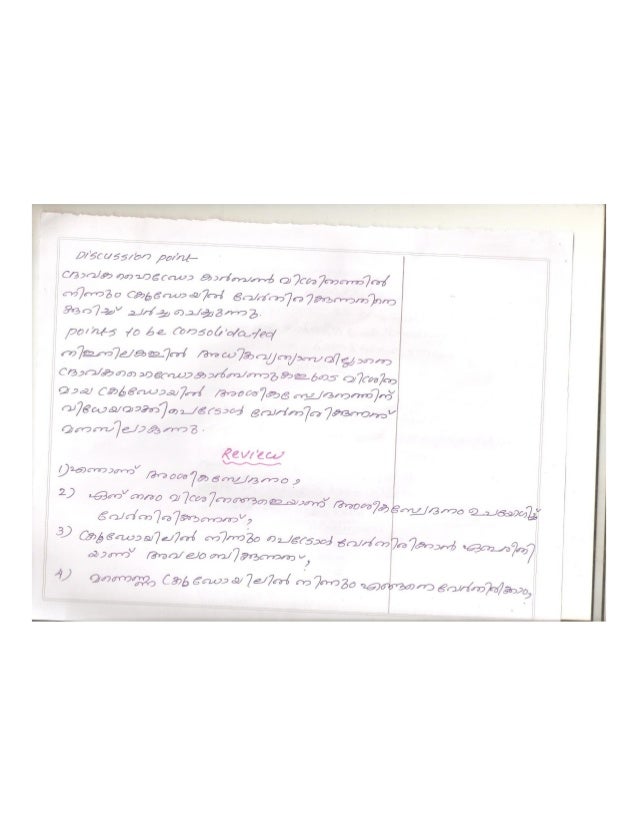 Discussion point
ദ്രാവക ഹൈഡ്രോ കാർബൺ മിശ്രിതത്തിൽ
നിന്നും ക്രൂഡോയിൽ വേർതിരിക്കുന്നതിനെ
കുറിച്ച് ചർച്ച ചെയ്യുന്നു.
points to be consolidated
തിളനിലകളിൽ അധികവ്യത്യാസമില്ലാത്ത
ദ്രാവകഹൈഡ്രോകാർബണുകളുടെ മിശ്രിത
മായ ക്രൂഡോയിൽ അംശികസ്വേദനത്തിന്
വിധേയമാക്കി പെട്രോൾ വേർതിരിക്കുന്നത്
മനസിലാകുന്നു.
Review
1) എന്താണ് അംശികസ്വേദനം?
2) ഏത് തരം മിശ്രിതങ്ങളെയാണ് അംശികസ്വേദനം ഉപയോഗിച്ച്
വേർതിരിക്കുന്നത്?
3) ക്രൂഡോയിലിൽ നിന്നും പെട്രോൾ വേർതിരിക്കാൻ ഏതുരീതി
യാണ് അവലംബിക്കുന്നത്?
4) മണ്ണെണ്ണ ക്രൂഡോയിലിൽ നിന്നും എങ്ങനെ വേർതിരിക്കാം?